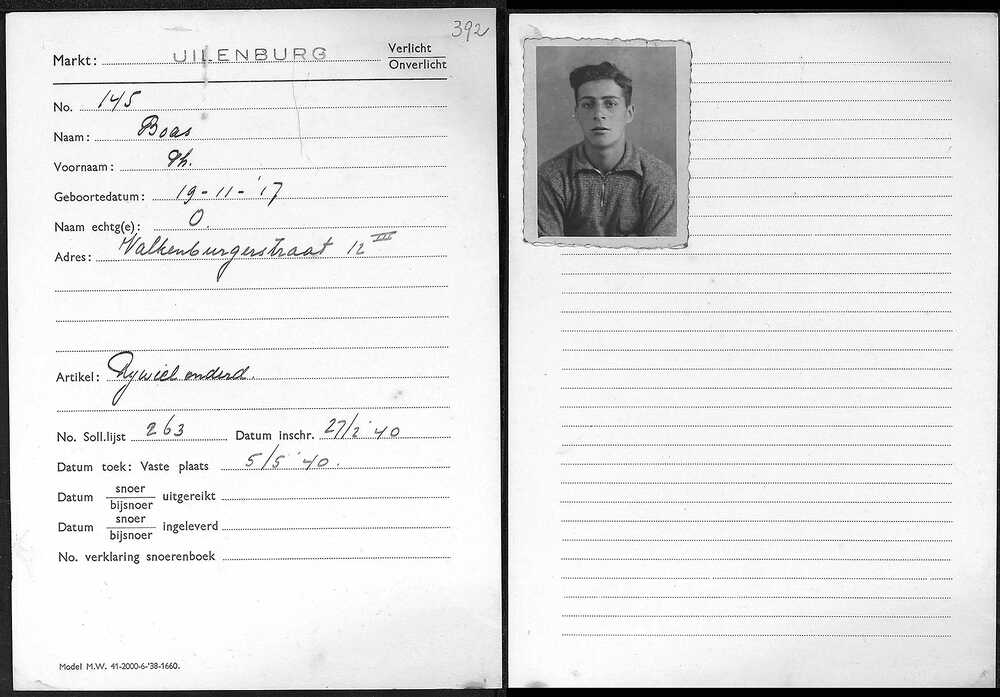 392
Markt: UILENBURG Verlicht
Onverlicht
No. 145
Naam: Boas
Voornaam: Ph.
Geboortedatum: 19-11-'17
Naam echtg(e): O.
Adres: Valkenburgerstraat 12 III
Artikel: Rywiel onderd.
No. Soll.lijst 263 Datum inschr. 27/2 '40
Datum toek: Vaste plaats 5/5 '40.
Datum snoer uitgereikt
bijsnoer
Datum snoer ingeleverd
bijsnoer
No. verklaring snoerenboek
Model M.W. 41-2000-6-'38-1660.